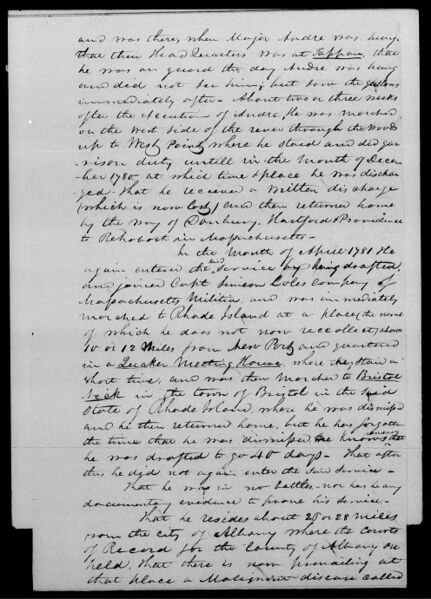 and was there, when Major Andre was hung
that then Head Quarters was at Tappan, that
he was on guard the day Andre was hung
and did not see him; but saw the gallows
immediately after - About two or three weeks
after the execution of Andre, He was marched
on the West side of the river through the woods
up to West Point, where he staid and did gar-
rison duty untill in the Month of Decem-
ber 1780, at which time & place he was dischar-
ged. That he received a written discharge
(which is now lost,) and then returned home
by the way of Danbury, Hartford & Providence
to Rehoboth in Massachusetts -
In the Month of April 1781 He
again entered the said Service by being drafted,
and joined Capt Simeon Coles company of
Massachusetts Militia and was immediately
marched to Rhode Island at a place (the name
of which he does not now recollect) about
10 or 12 Miles from New Port, and quartered
in a Quaker Meeting House, where they staid a
short time, and was then Marched to Bristol
Neck in the town of Bristol in the said
State of Rhode Island, where he was dismissed
and he then returned home, but he has forgotten
the time that he was dismissed, He knows that
he was drafted to go 40 days - That after
this he did not again enter the said service -
That he was in no battles - nor has he any
documentary evidence to prove his service -
That he resides about 25 or 28 miles
from the city of Albany where the Courts
of Record for the County of Albany are
held, That there is now prevailing at
that place a Malignant disease called